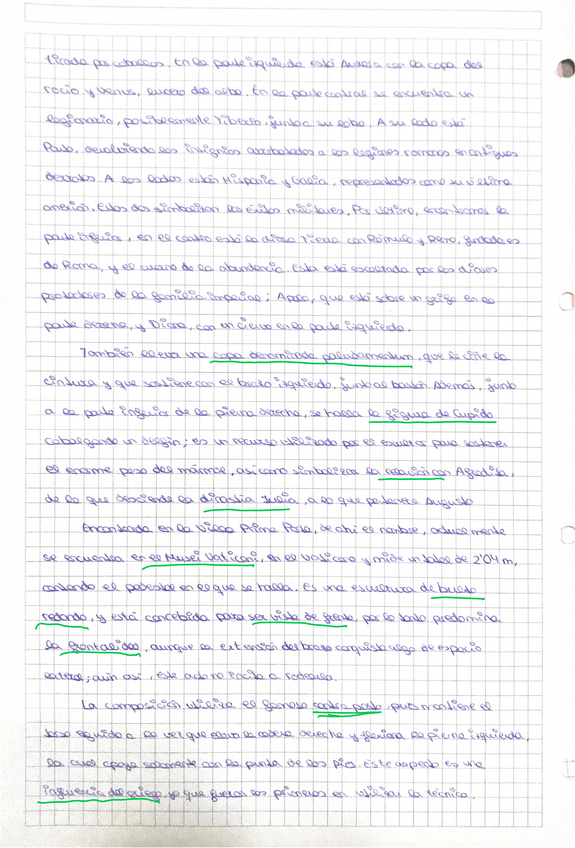 tirada por caballos. En la parte izquierda está Aurora con la copa del
rocío y Venus, lucero del alba. En la parte central se encuentra un
legionario, posiblemente Tiberio, junto a su lobo. A su lado está
Parto, devolviendo las insignias arrebatadas a las legiones romanas en antiguas
derrotas. A los lados están Hispania y Galia, representadas como su última
anexión. Estas dos simbolizan los éxitos militares. Por último, encontramos la
parte inferior, en el centro está la diosa Tierra con Rómulo y Remo, fundadores
de Roma, y el cuerno de la abundancia. Esta está escoltada por los dioses
protectores de la familia imperial; Apolo, que está sobre un grifo en la
parte derecha, y Diana, con un ciervo en la parte izquierda.
También lleva una capa denominada paludamentum, que le ciñe la
cintura y que sostiene con el brazo izquierdo, junto al bastón. Además, junto
a la parte inferior de la pierna derecha, se halla la figura de Cupido
cabalgando un delfín; es un recurso utilizado por el escultor para sostener
el enorme peso del mármol, así como simboliza la relación con Afrodita,
de la que desciende la dinastía Julia, a la que pertenece Augusto
Encontrada en la Villa Prima Porta, de ahí el nombre, actualmente
se encuentra en el Musei Vaticani, en el Vaticano y mide un total de 2'04 m,
contando el pedestal en el que se halla. Es una escultura de bulto
redondo, y está concebida para ser vista de frente, por lo tanto predomina
la frontalidad, aunque la extensión del brazo conquista algo de espacio
lateral; aún así, este adorno incita a rodearla.
La composición utiliza el famoso contraposto, pues mantiene el
torso erguido a la vez que eleva la cadera derecha y flexiona la pierna izquierda,
la cual apoya solamente con la punta de los pies. Este aspecto es una
influencia del griego, ya que fueron los primeros en utilizar la técnica.